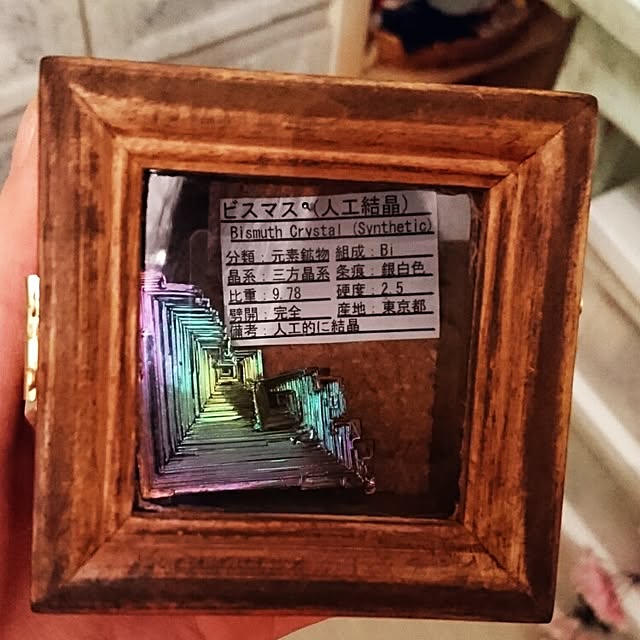 ビスマス (人工結晶)
Bismuth Crystal (Synthetic)
分類:元素鉱物 組成:Bi
晶系:三方晶系 条痕:銀白色
比重:9.78 硬度:2.5
劈開:完全 産地:東京都
備考:人工的に結晶